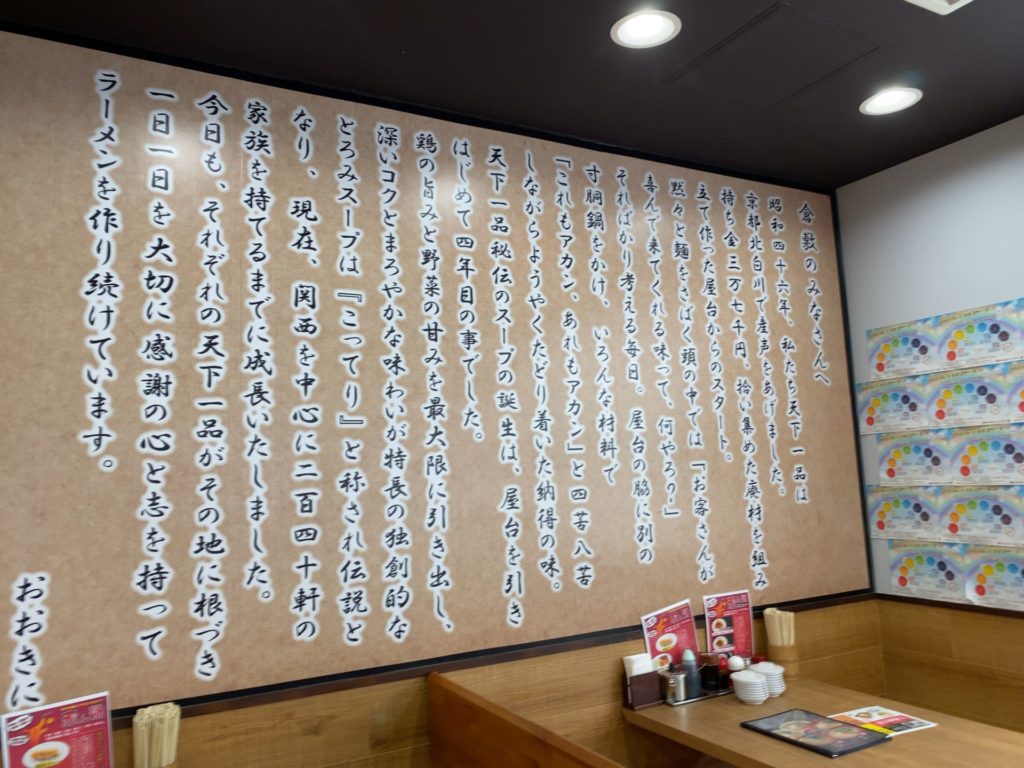 倉敷のみなさんへ
昭和四十六年、私たち天下一品は
京都北白川で産声をあげました。
持ち金三万七千円、拾い集めた廃材を組み
立て作った屋台からのスタート。
黙々と麺をさばく頭の中では「お客さんが
喜んで来てくれる味って、何やろう」
そればかり考える毎日。屋台の脇に別の
寸胴鍋をかけ、いろんな材料で
「これもアカン、あれもアカン」と四苦八苦
しながらようやくたどり着いた納得の味。
天下一品秘伝のスープの誕生は、屋台を引き
はじめて四年目の事でした。
鶏の旨みと野菜の甘みを最大限に引き出し、
深いコクとまろやかな味わいが特長の独創的な
とろみスープは『こってり』と称され伝説と
なり、現在、関西を中心に二百四十軒の
家族を持てるまでに成長いたしました。
今日も、それぞれの天下一品がその地に根づき
一日一日を大切に感謝の心と志を持って
ラーメンを作り続けています。
おおきに